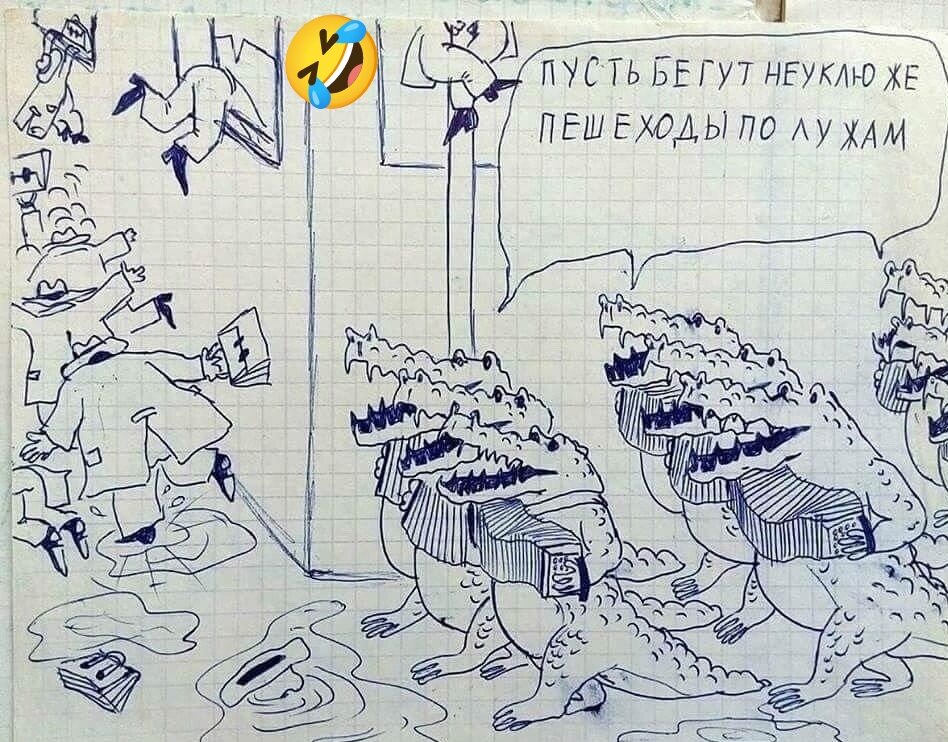 ПУСТЬ БЕГУТ НЕУКЛЮЖЕ
ПЕШЕХОДЫ ПО ЛУЖАМ